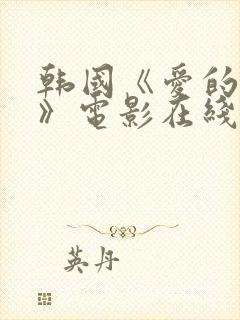 韩国《爱的
》电影在线
英丹